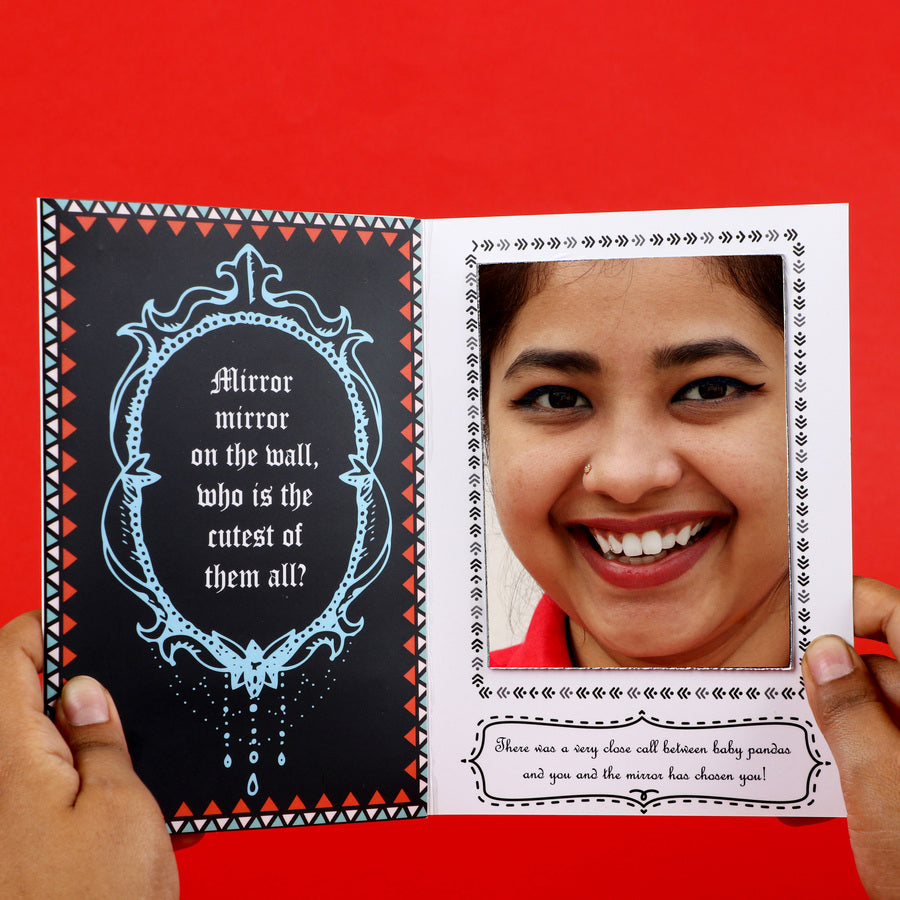 Mirror
mirror
on the wall,
who is the
cutest of
them all?
There was a very close call between baby pandas
and you and the mirror has chosen you!